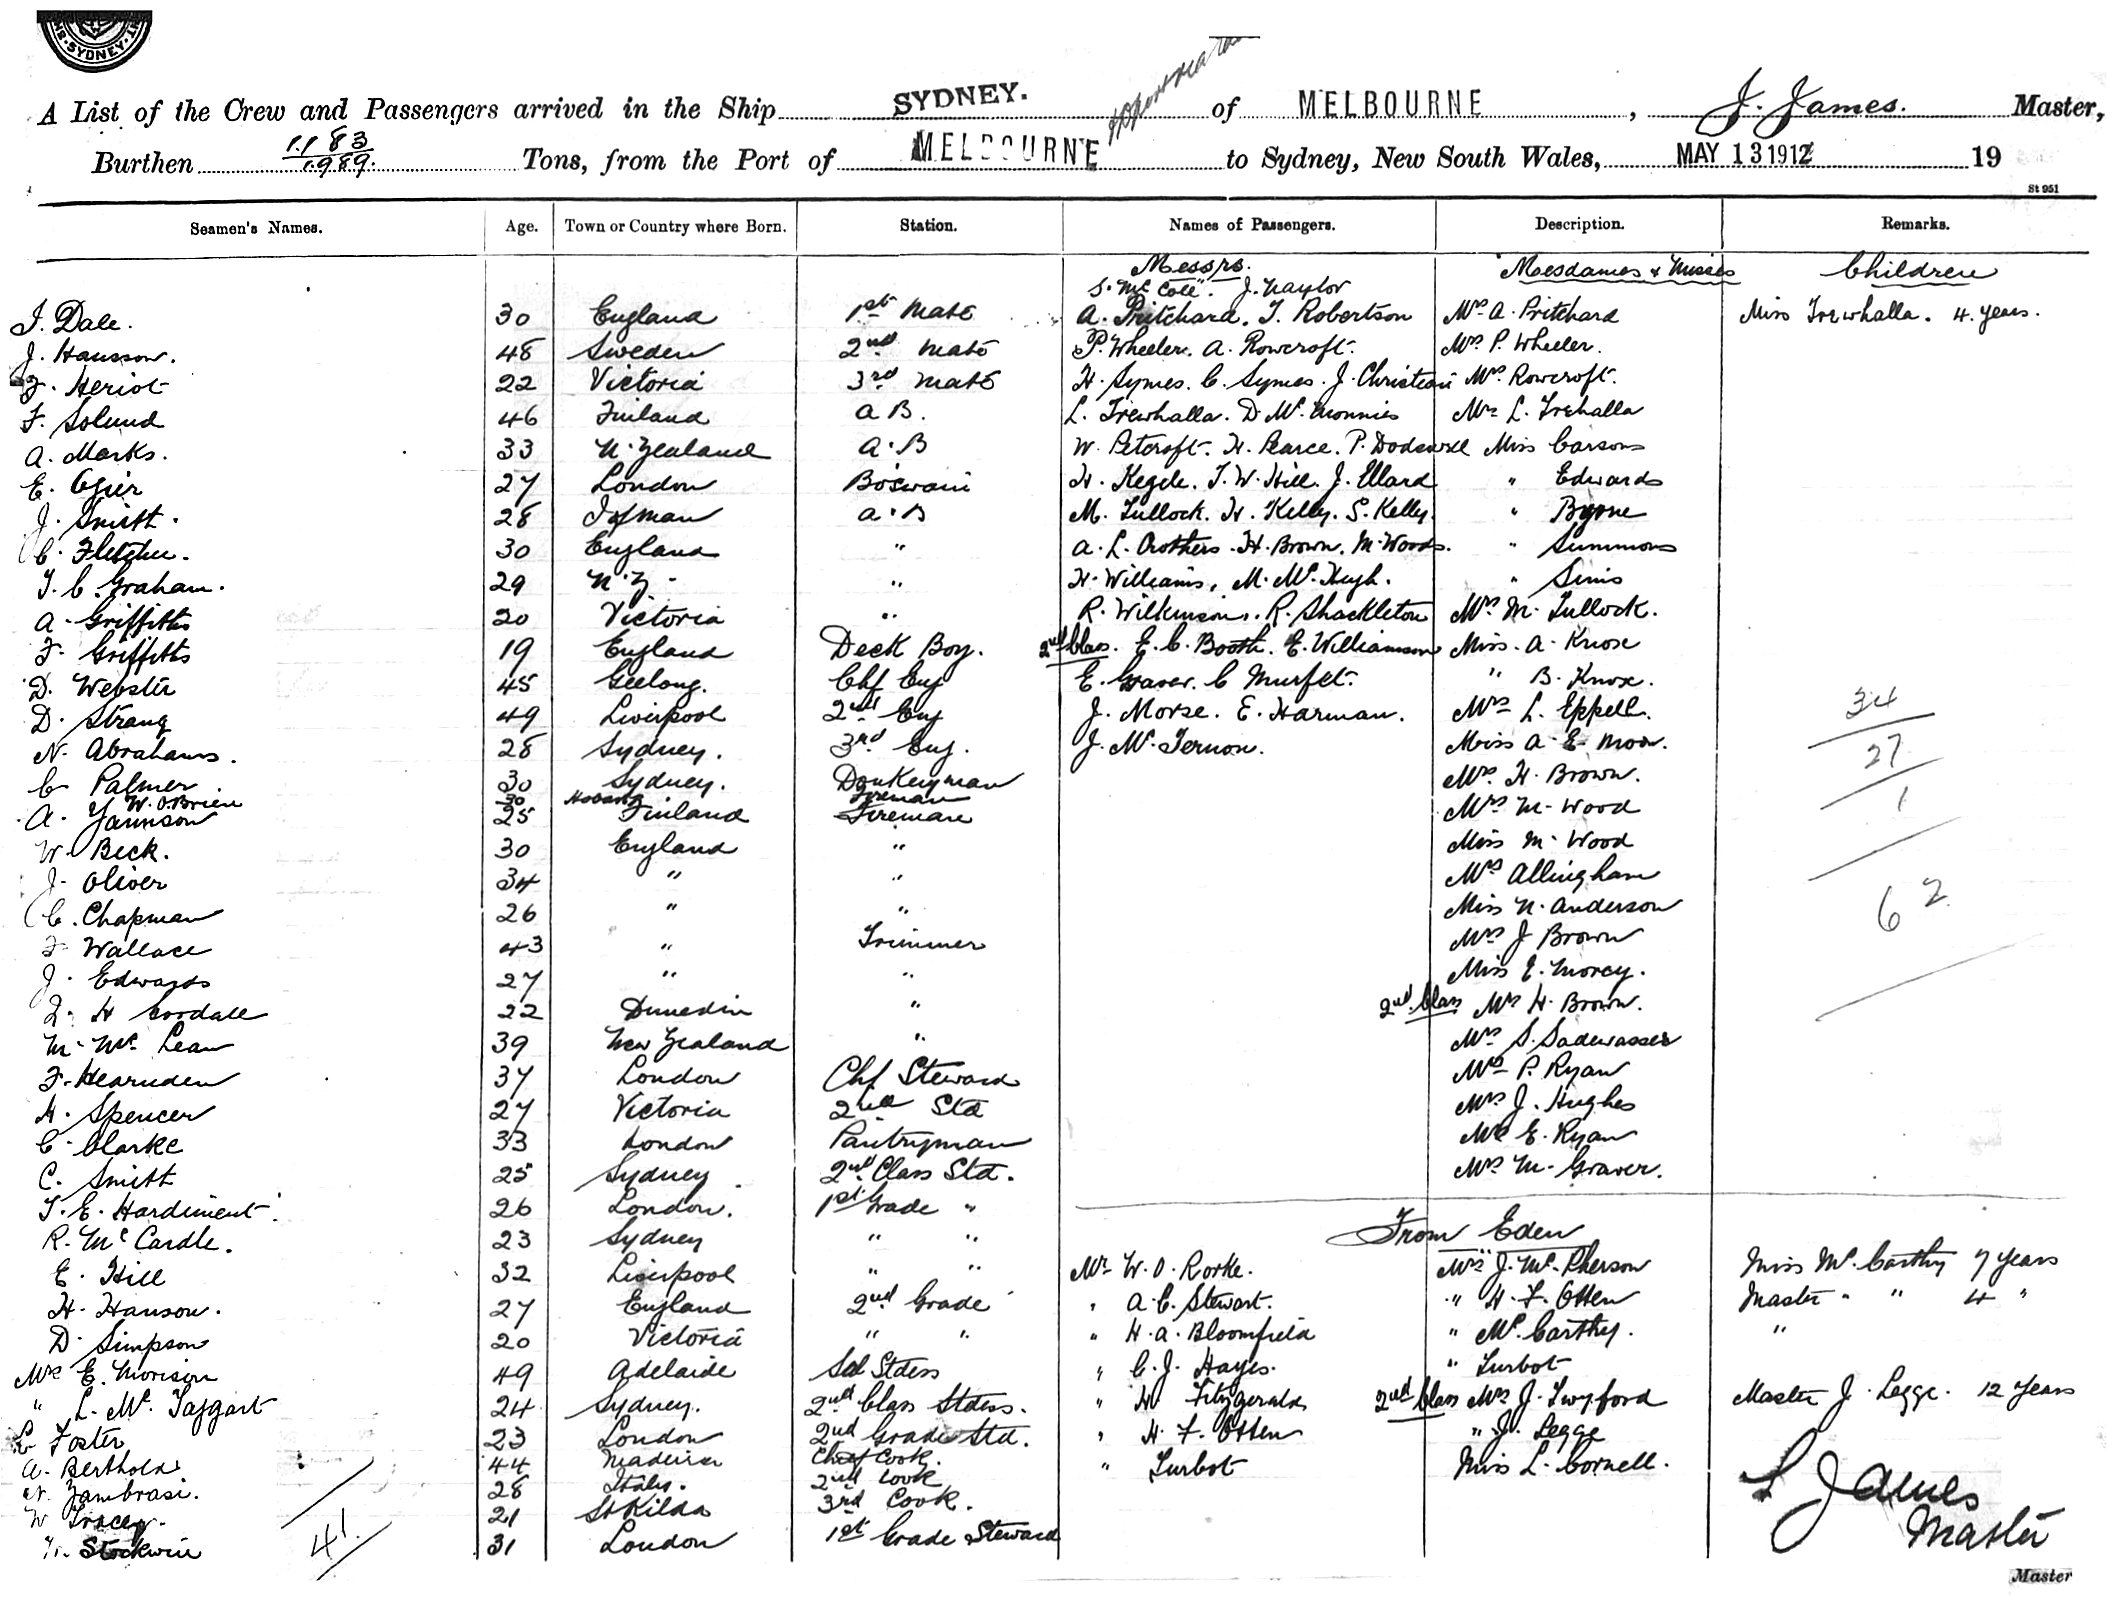 SYDNEY
A List of the Crew and Passengers arrived in the Ship SYDNEY. of MELBOURNE, J. James. Master,
Burthen 1.183 / 1.989. Tons, from the Port of MELBOURNE to Sydney, New South Wales, MAY 13 1912 19
St 951
Seamen's Names. Age. Town or Country where Born. Station. Names of Passengers. Description. Remarks.
Messrs. Mesdames & Misses Children
S. Mc Cole". J. Naylor
J. Dale. 30 England 1st Mate A. Pritchard. T. Robertson Mrs A. Pritchard Miss Trewhalla. 4. years.
J. Hansson. 48 Sweden 2nd Mate P. Wheeler. A. Rowcroft. Mrs P. Wheeler.
F. Heriot 22 Victoria 3rd Mate H. Symes. C. Symes. J. Christian Mrs. Rowcroft.
F. Solund 46 Finland A B. L. Trewhalla. D. Mc. Monnies Mrs L. Trehalla
A. Marks. 33 N. Zealand A. B W. Petcroft. H. Pearce. P. Dodswell Miss Carsons
E. Ogier 27 London Boswain H. Kegele. T. W. Hill. J. Ellard " Edwards
J. Smith. 28 I of Man A. B M. Tullock. H. Kelly. S. Kelly. " Byrne
C. Fletcher. 30 England " A. L. Crothers. H. Brown. M. Woods. " Summons
T. C. Graham. 29 N. Z - " H. Williams, M. Mc. Hugh. " Sims
A. Griffiths 20 Victoria " R. Wilkinson. R. Shackleton Mrs M. Tullock.
F. Griffiths 19 England Deck Boy. 2nd Class. E. C. Booth. E. Williamson Miss. A. Knox
D. Webster 45 Geelong. Chf Eng E. Graver. C Murfet. " B. Knox.
D. Strang 49 Liverpool 2nd Eng J. Morse. E. Harman. Mrs L. Eppell. 34
N. Abrahams. 28 Sydney. 3rd Eng. J. Mc. Ternon. Miss A. E. Moor. 27
C Palmer 30 Sydney. Donkeyman Mrs. H. Brown.
W. O.Brien 30 Hobart Fireman
A. Yannson 25 Finland Fireman Mrs M. Wood 1
W. Beck. 30 England " Miss M. Wood
J. Oliver 34 " " Mrs Allingham
C. Chapman 26 " " Miss N. Anderson 62
F Wallace 43 " Trimmer Mrs J Brown
J. Edwards 27 " " Miss E. Morcy.
J. H Cordall 22 Dunedin " 2nd. Class Mrs H. Brown.
M. Mc. Lean 39 New Zealand " Mrs S. Sadewasser
F. Hearnden 37 London Chf Steward Mrs P. Ryan
H. Spencer 27 Victoria 2nd Std Mrs J. Hughes
C. Clarke 33 London Pantryman Mrs E. Ryan
C. Smith 25 Sydney 2nd Class Std. Mrs M. Graver.
T. E. Hardiment. 26 London. 1st Grade "
R. Mc Cardle. 23 Sydney " " From Eden
E. Hill 32 Liverpool " " Mr W. O. Rorke. Mrs J. Mc. Pherson Miss Mc. Carthy 7 years
H. Hanson. 27 England 2nd Grade " A. C. Stewart. " H. F. Otten Master " " 4 "
D. Simpson 20 Victoria " " " H. A. Bloomfield " Mc. Carthy. "
Mrs E. Morison 49 Adelaide Sal Stdess " C. J. Hayes. " Turbot
" L. Mc. Taggart 24 Sydney. 2nd Class Stdess. " H Fitzgerald 2nd Class Mrs J. Twyford Master J. Legge. 12 years
C Foster 23 London 2nd Grade Std. " H. F. Otten " J. Legge
A. Berthold 44 Madeira Chef Cook. " Turbot Miss L. Cornell.
Zambrasi. 28 Italy. 2nd Cook
W Tracey. 21 St Kilda 3rd Cook.
Stockwin 31 London 1st Grade Steward
41.
J James
Master
Master